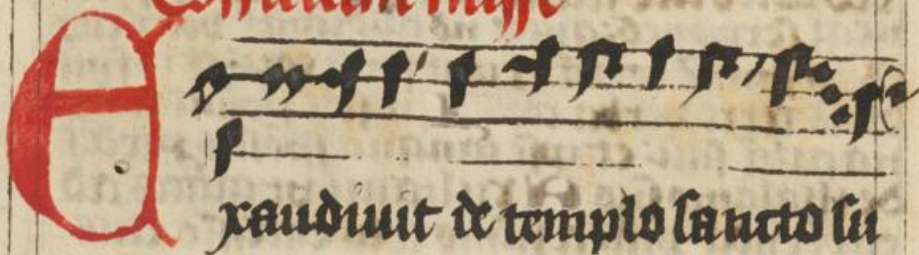 Exaudiuit de templo sancto su